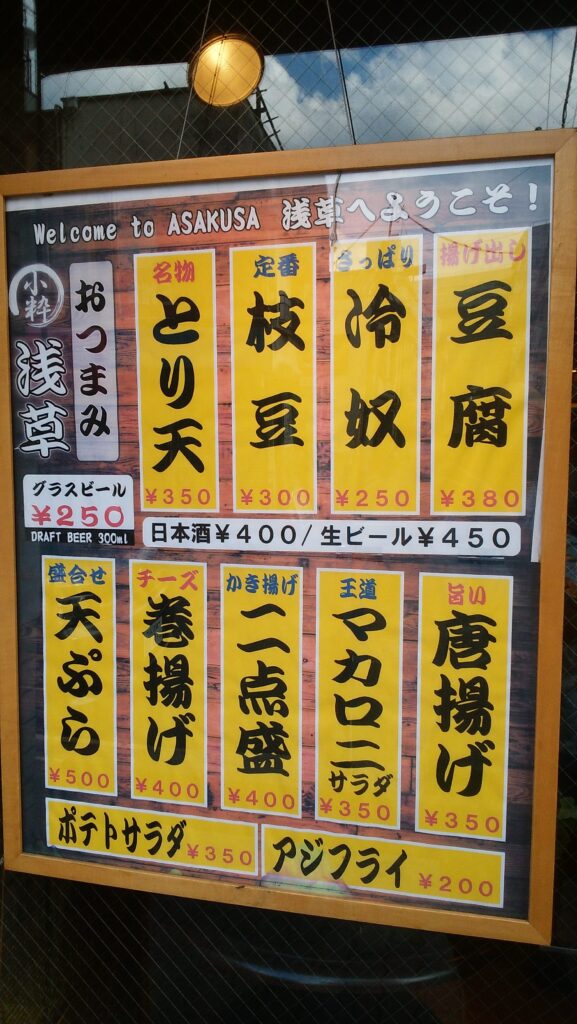 Welcome to ASAKUSA 浅草へようこそ！
小粋
浅草
おつまみ
名物
とり天
￥350
定番
枝豆
￥300
さっぱり
冷奴
￥250
揚げ出し
豆腐
￥380
グラスビール
￥250
DRAFT BEER 300ml
日本酒￥400/生ビール￥450
盛合せ
天ぷら
￥500
チーズ
巻揚げ
￥400
かき揚げ
二点盛
￥400
王道
マカロニ
サラダ
￥350
旨い
唐揚げ
￥350
ポテトサラダ￥350
アジフライ ￥200